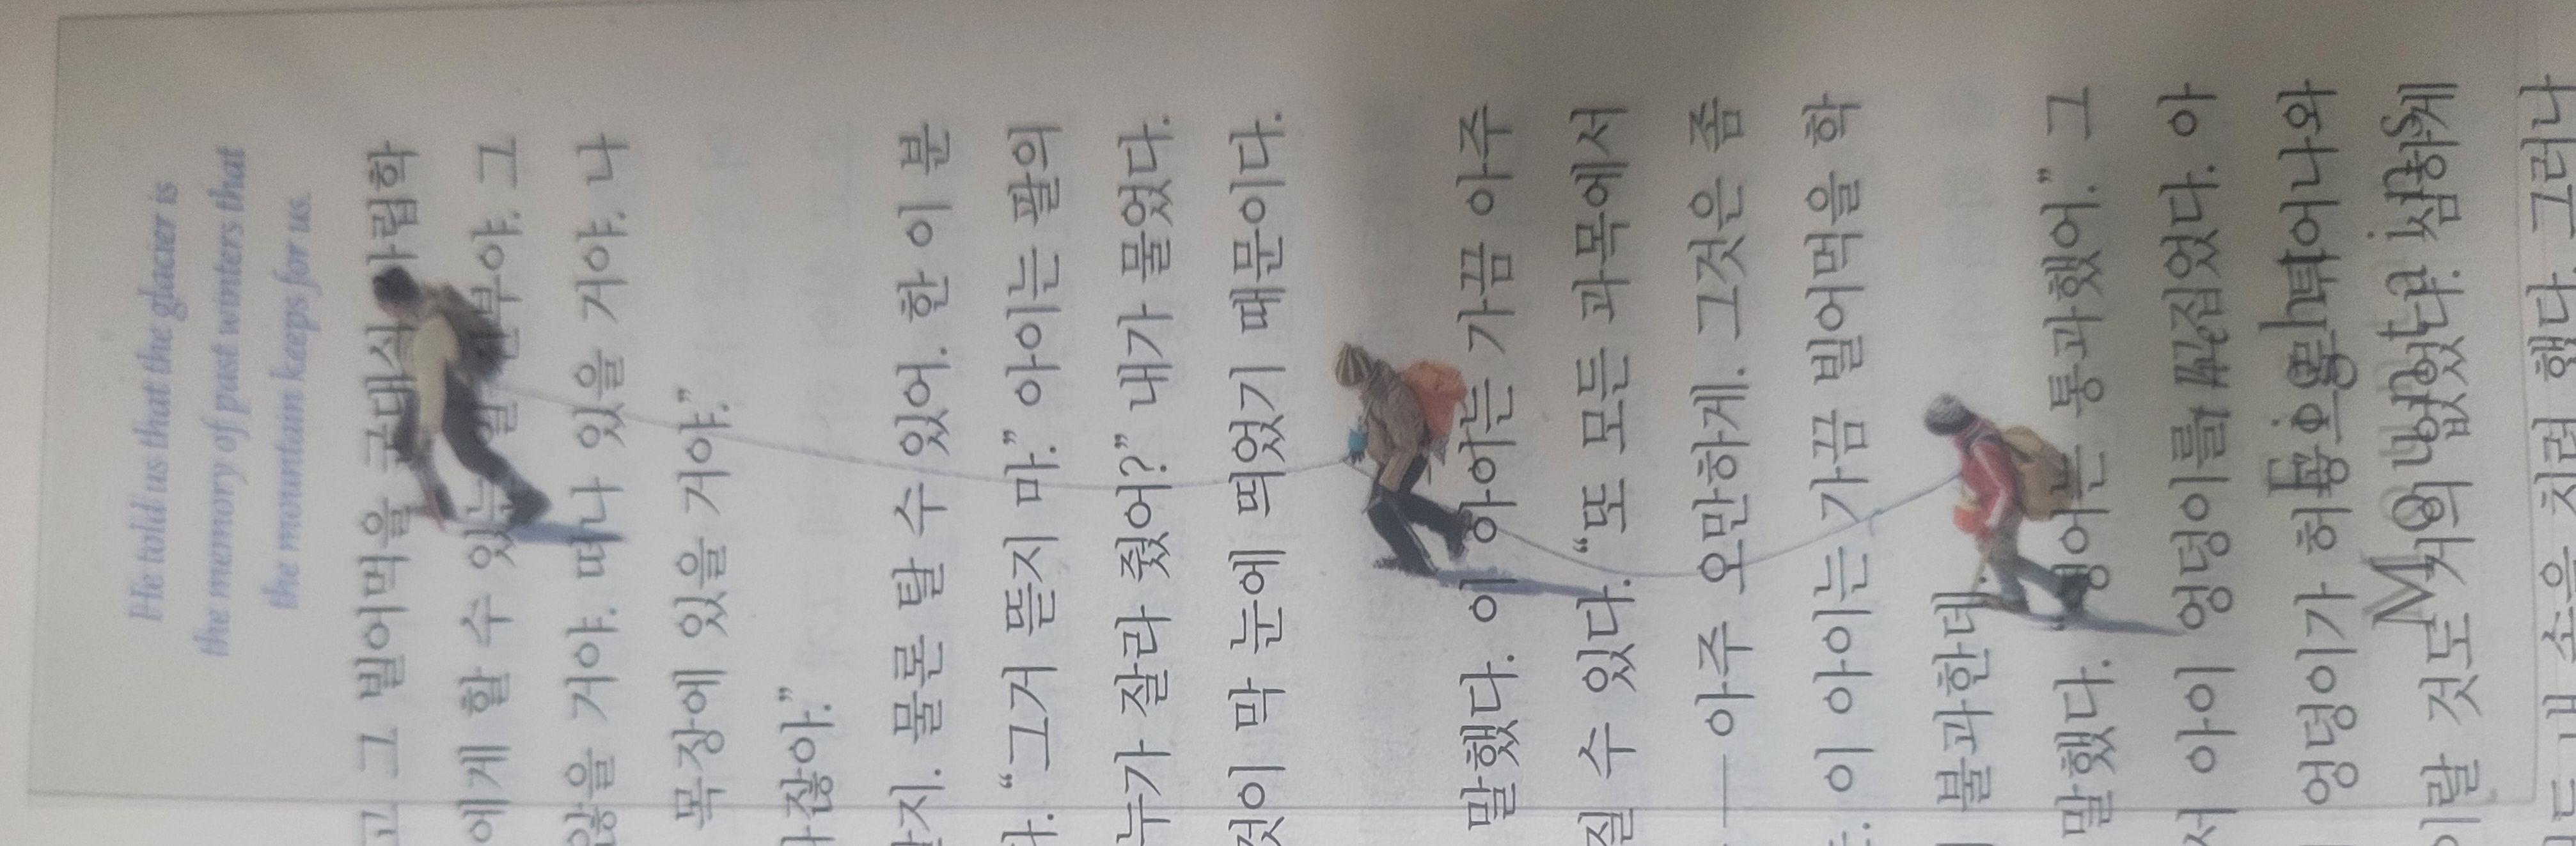 He told us that the glacier is
the memory of past winters that
the mountain keeps for us.
고 그 빌어먹을 군대식
에게 할 수 있는 그
않을 거야. 떠나 있을 거야. 나
목장에 있을 거야.”
물론 탈 수 있어. 한 이 분
“그거 뜯지 마.” 아이는 팔의
누가 잘라 줬어?” 내가 물었다.
것이 막 눈에 띄었기 때문이다.
말했다. 이 아이는 가끔 아주
질 수 있다. “또 모든 과목에서
— 아주 오만하게. 그것은 좀
이 아이는 가끔 빌어먹을 학
불과한데.
말했다. 통과했어.” 그
서 아이 엉덩이를 꼬집었다. 아
엉덩이가 허공으로 튀어나와
이랄 것도 거의 없었다. 심하게
Mountains
내 손을 치려 했다. 그러나